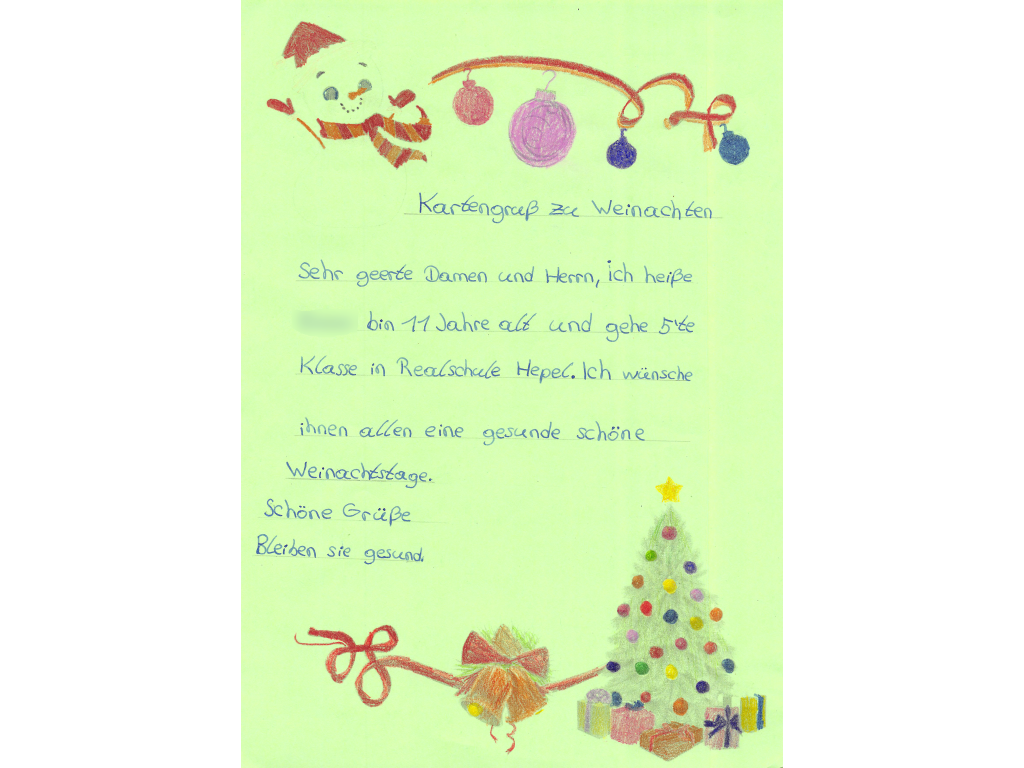 Kartengruß zu Weinachten
Sehr geerte Damen und Herrn, ich heiße
bin 11 Jahre alt und gehe 5te
Klasse in Realschule Hepel. Ich wünsche
ihnen allen eine gesunde schöne
Weinachtstage.
Schöne Grüße
Bleiben sie gesund.